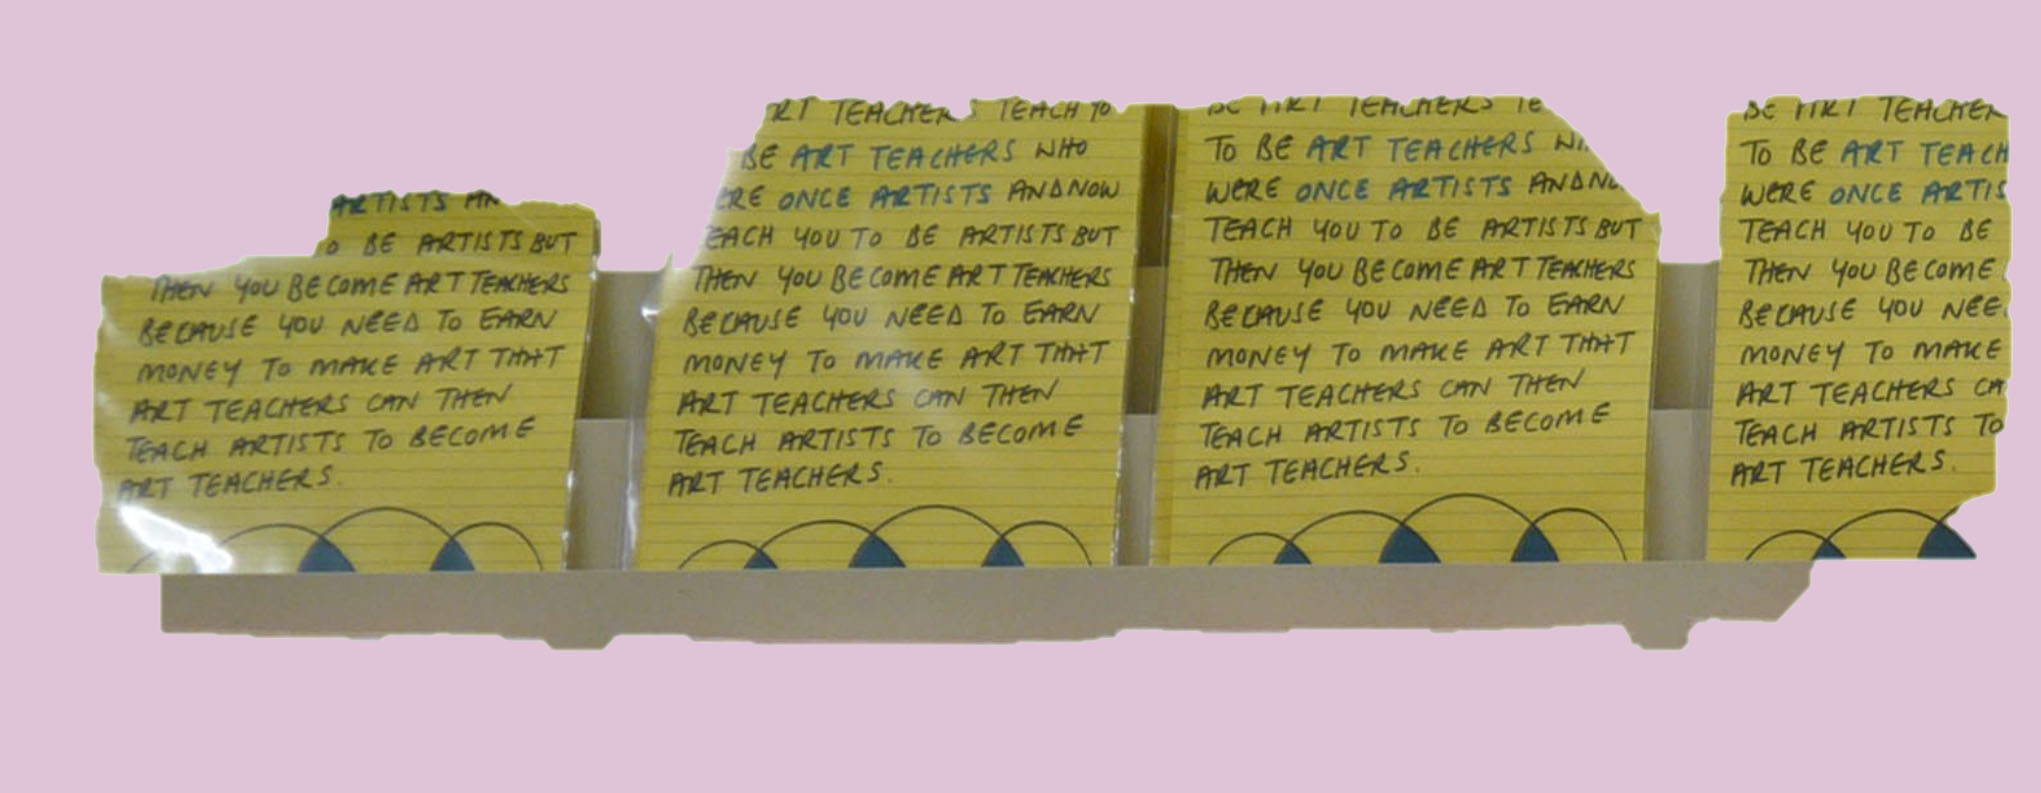 ARTISTS
BE ARTISTS BUT
THEN YOU BECOME ART TEACHERS
BECAUSE YOU NEED TO EARN
MONEY TO MAKE ART THAT
ART TEACHERS CAN THEN
TEACH ARTISTS TO BECOME
ART TEACHERS.
TEACHERS TEACH TO
BE ART TEACHERS WHO
ONCE ARTISTS AND NOW
YOU TO BE ARTISTS BUT
THEN YOU BECOME ART TEACHERS
BECAUSE YOU NEED TO EARN
MONEY TO MAKE ART THAT
ART TEACHERS CAN THEN
TEACH ARTISTS TO BECOME
ART TEACHERS.
BE ART TEACHERS
TO BE ART TEACHERS
WERE ONCE ARTISTS AND
TEACH YOU TO BE ARTISTS BUT
THEN YOU BECOME ART TEACHERS
BECAUSE YOU NEED TO EARN
MONEY TO MAKE ART THAT
ART TEACHERS CAN THEN
TEACH ARTISTS TO BECOME
ART TEACHERS.
BE ART
TO BE ART
WERE ONCE
TEACH YOU TO BE
THEN YOU BECOME
BECAUSE YOU
MONEY TO MAKE
ART TEACHERS
TEACH ARTISTS TO
ART TEACHERS.